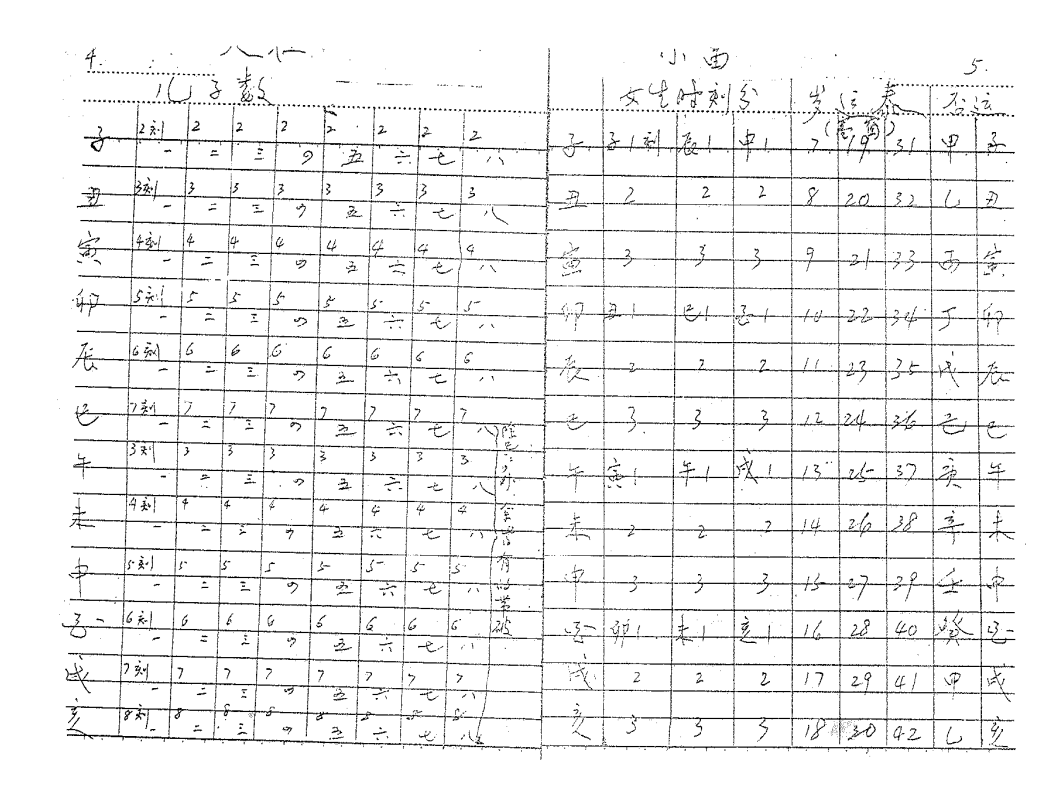 4.
儿子数
子 2刻 2 2 2 2 2 2 2
一 二 三 四 五 六 七 八
丑 3刻 3 3 3 3 3 3 3
一 二 三 四 五 六 七 八
寅 4刻 4 4 4 4 4 4 4
一 二 三 四 五 六 七 八
卯 5刻 5 5 5 5 5 5 5
一 二 三 四 五 六 七 八
辰 6刻 6 6 6 6 6 6 6
一 二 三 四 五 六 七 八
巳 7刻 7 7 7 7 7 7 7
一 二 三 四 五 六 七 八
午 3刻 3 3 3 3 3 3 3
一 二 三 四 五 六 七 八
未 4刻 4 4 4 4 4 4 4
一 二 三 四 五 六 七 八
申 5刻 5 5 5 5 5 5 5
一 二 三 四 五 六 七 八
酉 6刻 6 6 6 6 6 6 6
一 二 三 四 五 六 七 八
戌 7刻 7 7 7 7 7 7 7
一 二 三 四 五 六 七 八
亥 8刻 8 8 8 8 8 5 8
一 二 三 四 五 六 七 八
小 5.
女生时刻分
子 子1刻 辰1 申1 7 19 31 甲 子
丑 2 2 2 8 20 32 乙 丑
寅 3 3 3 9 21 33 丙 寅
卯 丑1 巳1 酉1 10 22 34 丁 卯
辰 2 2 2 11 23 35 戊 辰
巳 3 3 3 12 24 36 己 巳
午 寅1 午1 戌1 13 25 37 庚 午
未 2 2 2 14 26 38 辛 未
申 3 3 3 15 27 39 壬 申
酉 卯1 未1 亥1 16 28 40 癸 酉
戌 2 2 2 17 29 41 甲 戌
亥 3 3 3 18 30 42 乙 亥